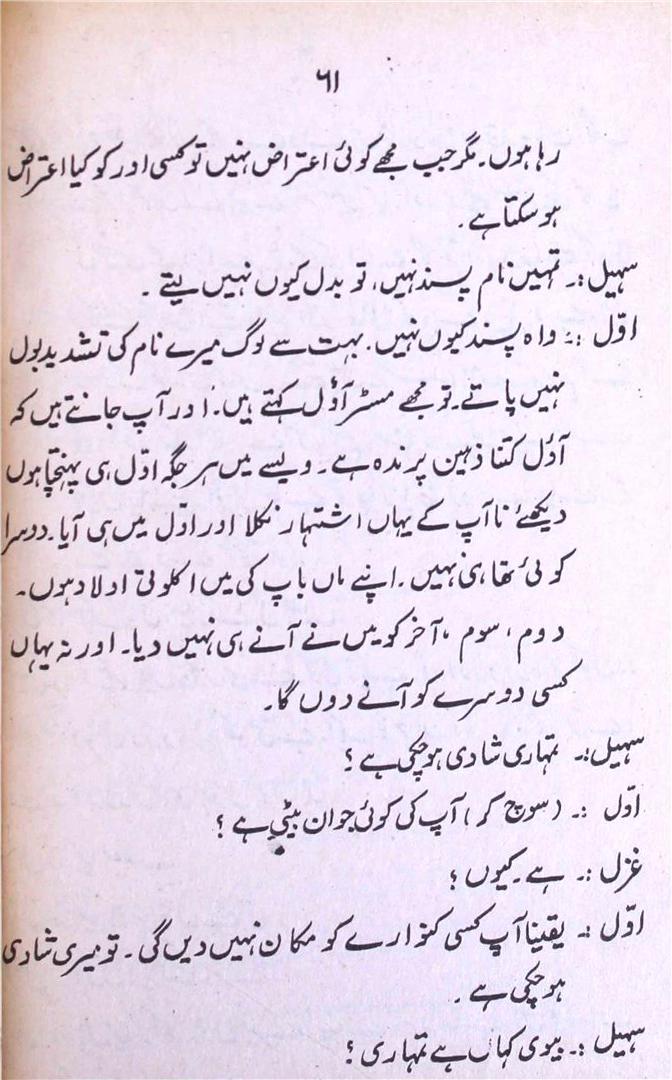 ٦١
رہا ہوں۔ مگر جب مجھے کوئی اعتراض نہیں تو کسی اور کو کیا اعتراض
ہو سکتا ہے۔
سہیل :۔ تمہیں نام پسند نہیں، تو بدل کیوں نہیں لیتے ۔
اوّل :۔ واہ پسند کیوں نہیں۔ بہت سے لوگ میرے نام کی تشدید بول
نہیں پاتے۔ تو مجھے مسٹر آؤل کہتے ہیں۔ اور آپ جانتے ہیں کہ
آؤل کتنا ذہین پرندہ ہے۔ ویسے میں ہر جگہ اوّل ہی پہنچتا ہوں
دیکھئے نا آپ کے یہاں اشتہار نکلا اور اوّل میں ہی آیا۔ دوسرا
کوئی تھا ہی نہیں۔ اپنے ماں باپ کی میں اکلوتی اولاد ہوں۔
دوم، سوم، آخر کو میں نے آنے ہی نہیں دیا۔ اور نہ یہاں
کسی دوسرے کو آنے دوں گا۔
سہیل :۔ تمہاری شادی ہو چکی ہے ؟
اوّل :۔ (سوچ کر) آپ کی کوئی جوان بیٹی ہے ؟
غزل :۔ ہے۔ کیوں ؟
اوّل :۔ یقیناً آپ کسی کنوارے کو مکان نہیں دیں گی ۔ تو میری شادی
ہو چکی ہے ۔
سہیل :۔ بیوی کہاں ہے تمہاری ؟